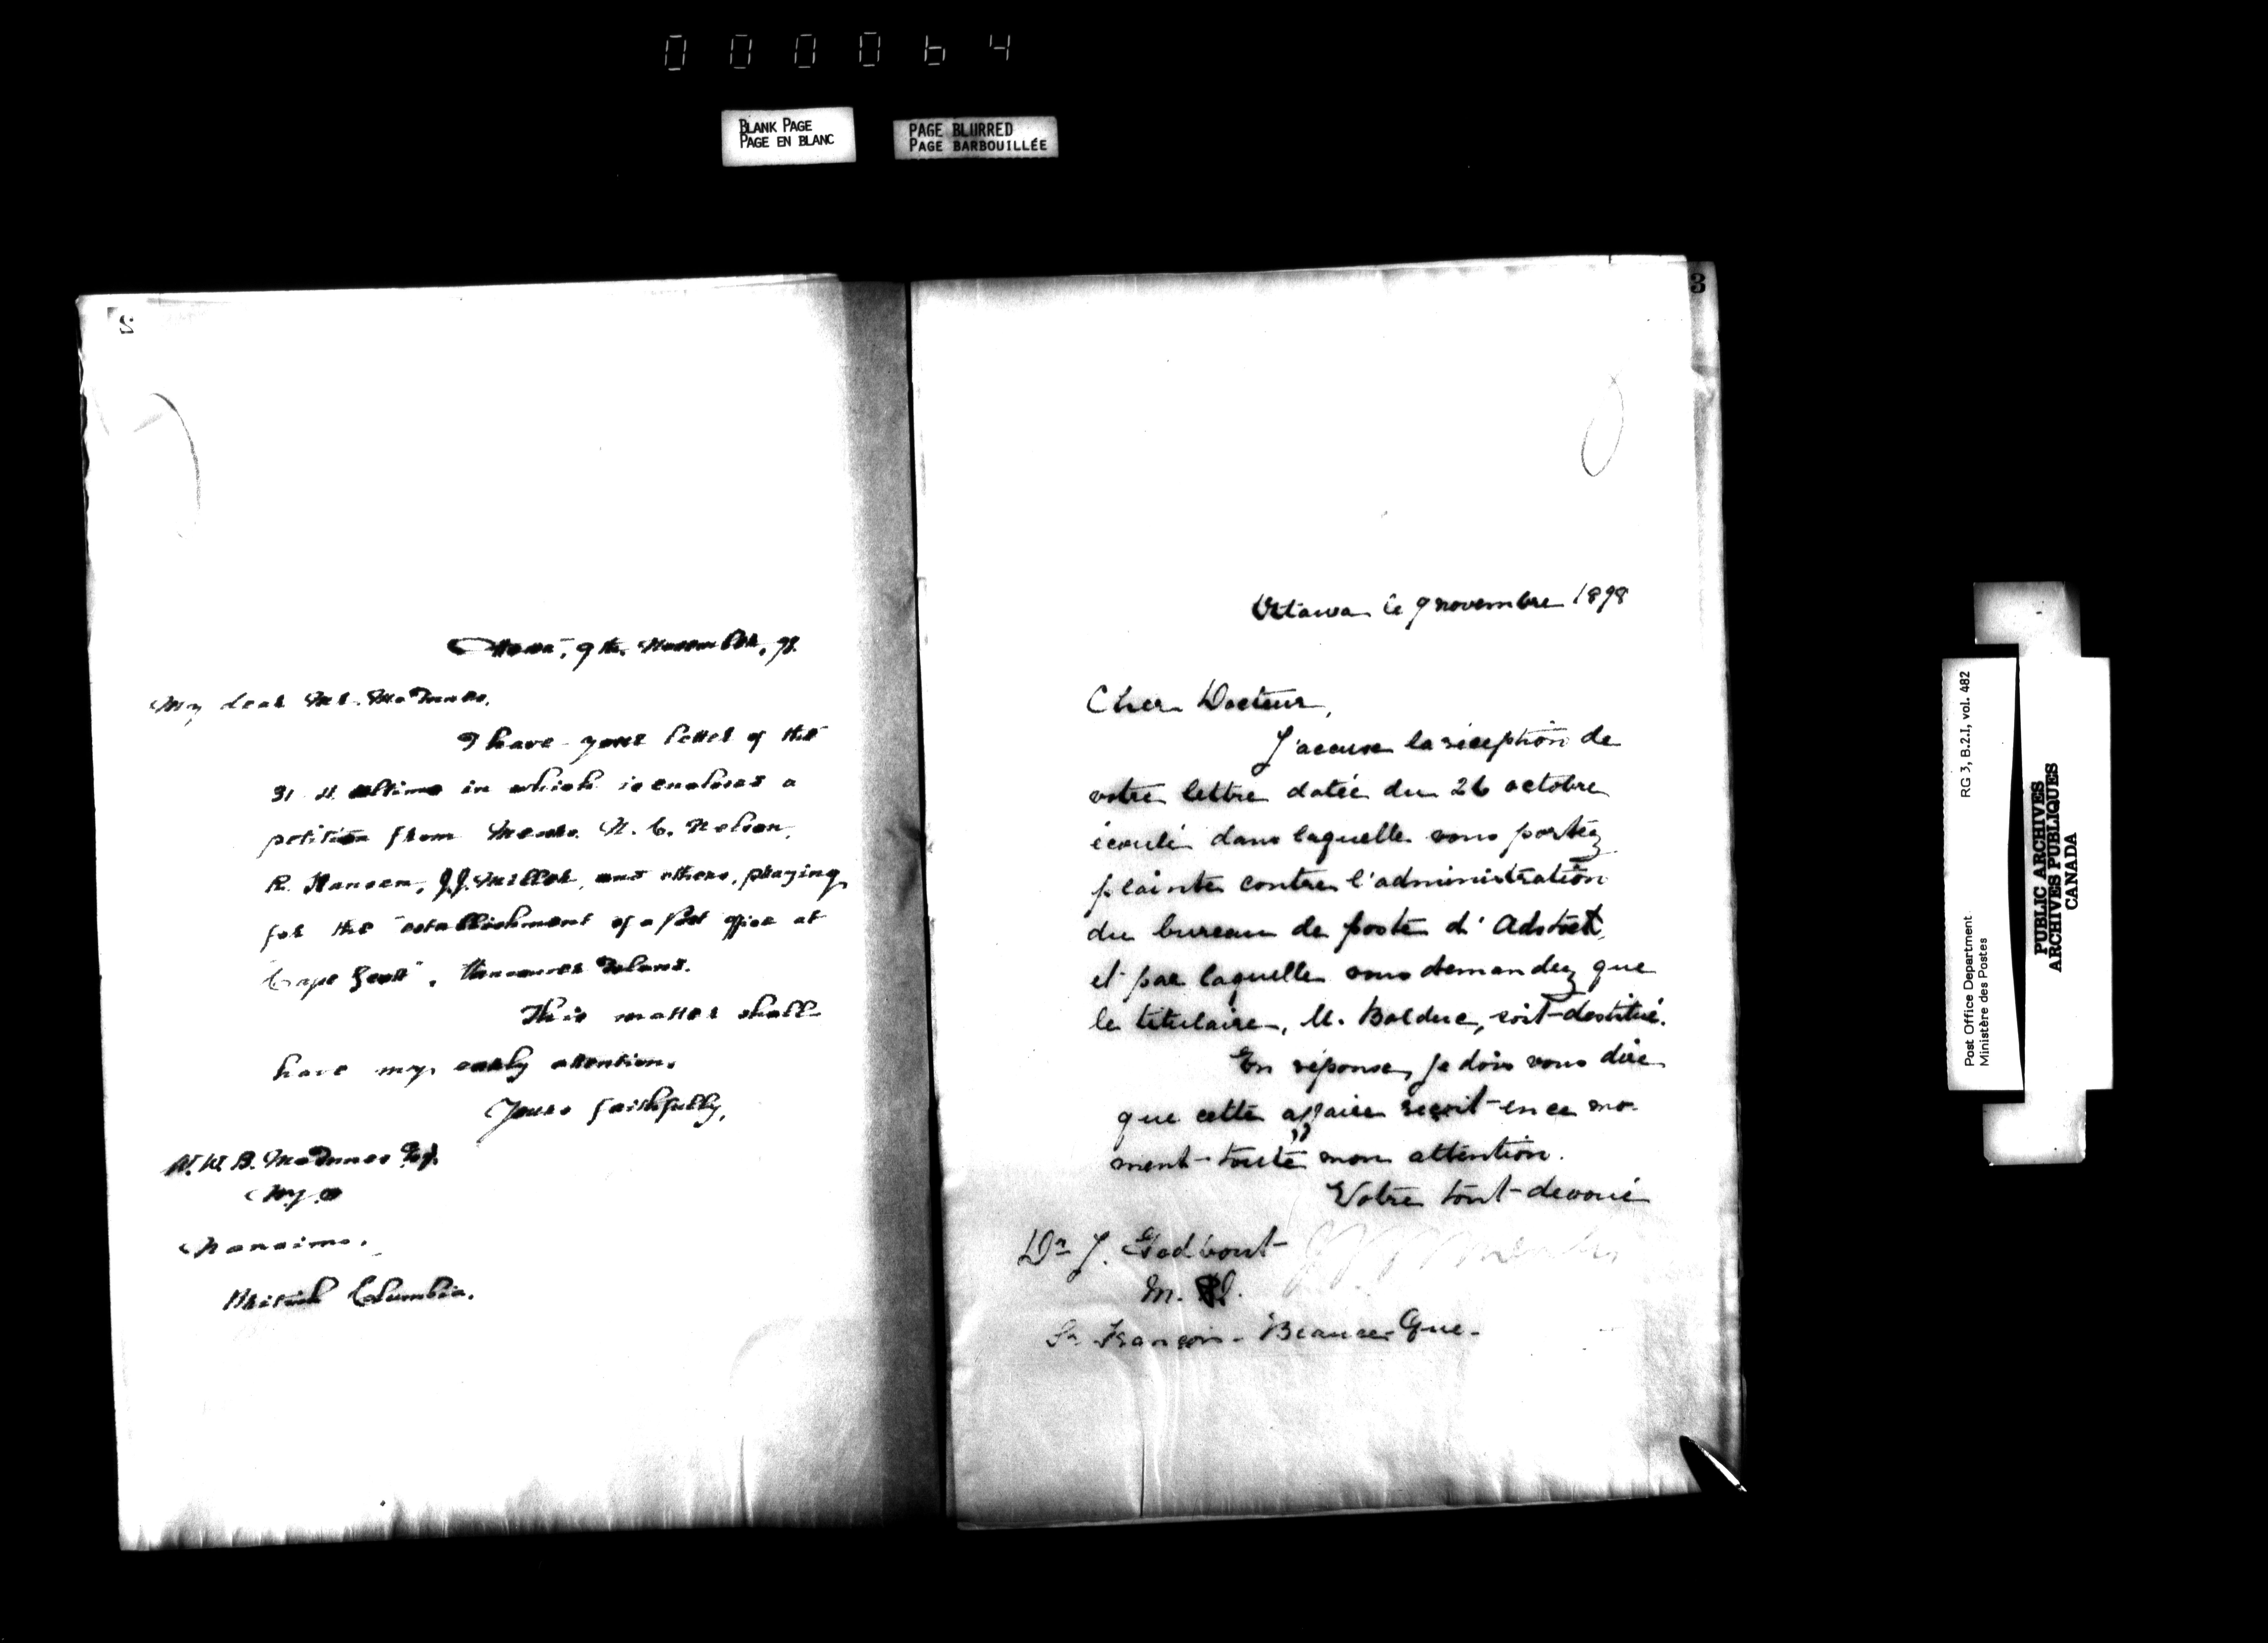 000064
BLANK PAGE
PAGE EN BLANC
PAGE BLURRED
PAGE BARBOUILLÉE
2
Ottawa, 9th. November, 98.
My dear Mr. McInnes,
I have your letter of the
31st ultimo in which is enclosed a
petition from Messrs. N. C. Nelson,
R. Hansen, J.J. Miller, and others, praying
for the establishment of a Post office at
"Cape Scott", Vancouver Island.
This matter shall
have my early attention.
Yours faithfully,
W. W. B. McInnes Esq.
M.P.
Nanaimo,
British Columbia.
3
Ottawa le 9 novembre 1898
Cher Docteur,
J'accuse la réception de
votre lettre datée du 26 octobre
écoulé dans laquelle vous portez
plainte contre l'administration
du bureau de poste d'Adstock,
et par laquelle vous demandez que
le titulaire, M. Bolduc, soit destitué.
En réponse, je dois vous dire
que cette affaire reçoit en ce mo-
ment toute mon attention.
Votre tout dévoué
Dr J. Godbout
M. P.
St François - Beauce Que.
Post Office Department RG 3, B.2.I, vol. 482
Ministère des Postes
PUBLIC ARCHIVES
ARCHIVES PUBLIQUES
CANADA